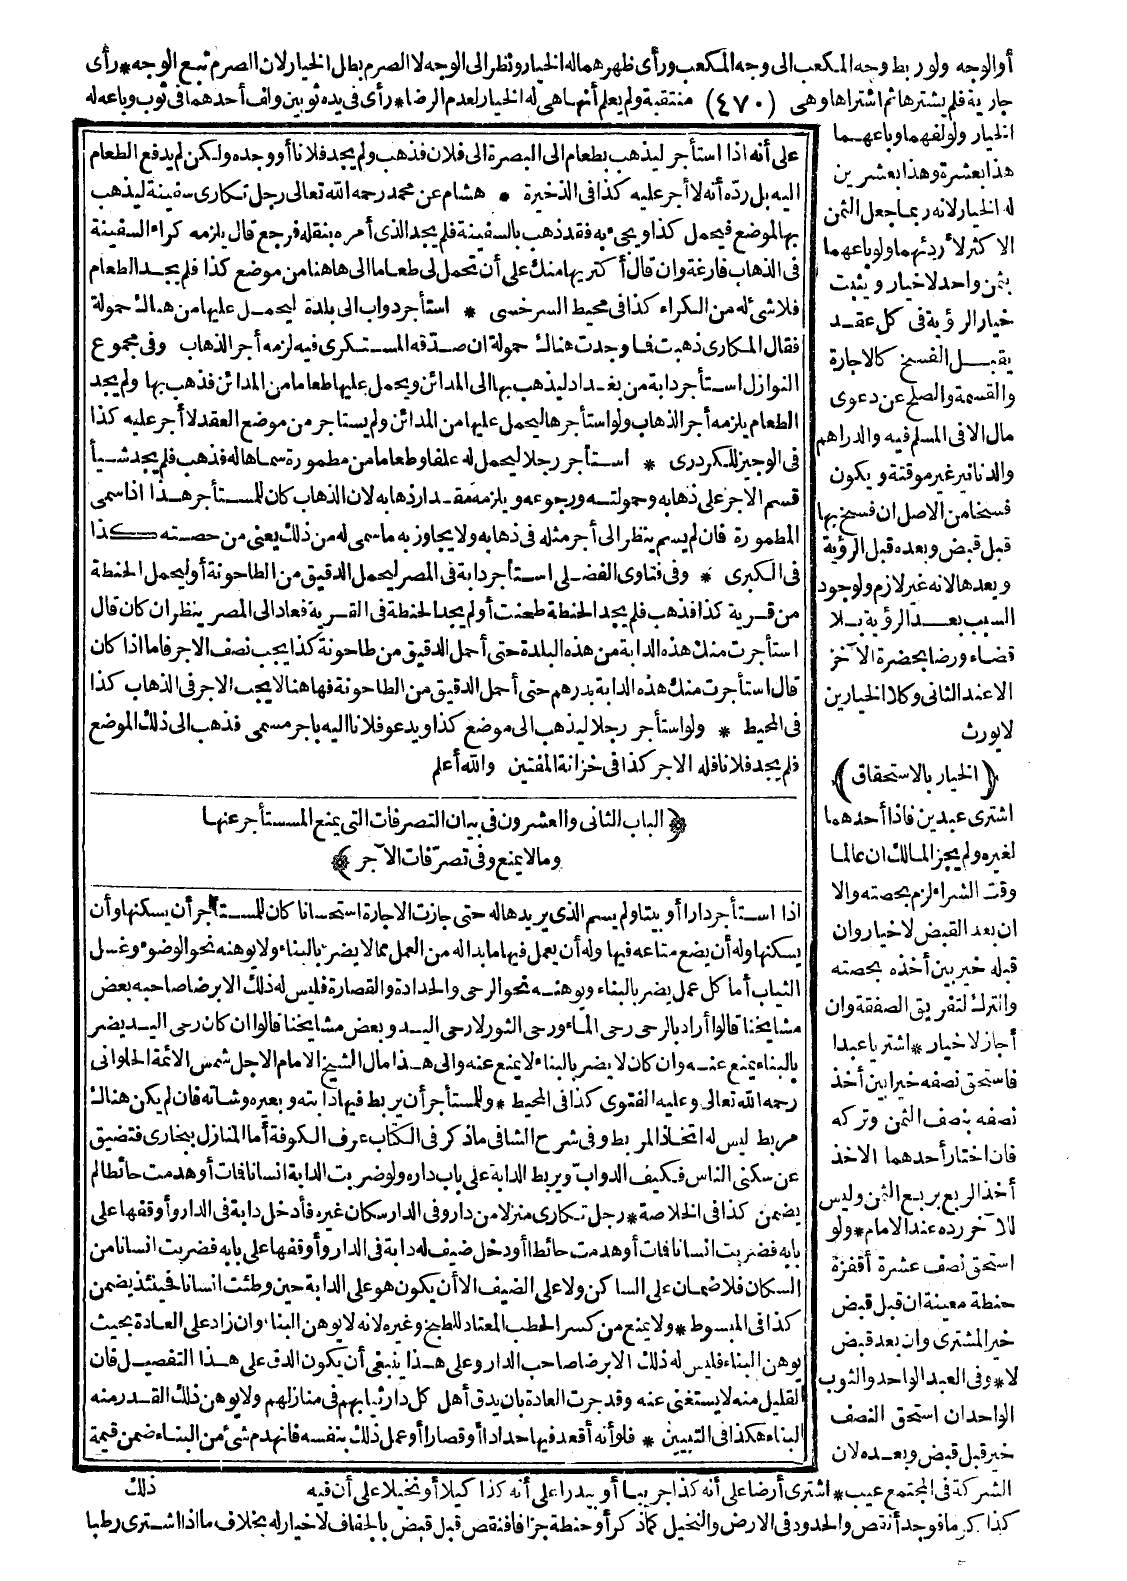 أو الوجه ولو ربط وجه المكعب الى وجه المكعب ورأى ظهرهما له الخيار ونظر الى الوجه لا الصرم بطل الخيار لان الصرم تبع الوجه * رأى
جارية فلم يشترها ثم اشتراها وهى (٤٧٠) منتقبة ولم يعلم أنها هى له الخيار لعدم الرضا * رأى فى يده ثوبين ولف أحدهما فى ثوب وباعه له
الخيار ولو لفهما وباعهما
هذا بعشرة وهذا بعشرين
له الخيار لانه ربما جعل الثمن
الاكثر لأردئهما ولو باعهما
بثمن واحد لا خيار ويثبت
خيار الرؤية فى كل عقد
يقبل الفسخ كالاجارة
والقسمة والصلح عن دعوى
مال الا فى المسلم فيه والدراهم
والدنانير غير موقتة ويكون
فسخا من الاصل ان فسخ بها
قبل قبض وبعده قبل الرؤية
وبعدها لانه غير لازم ولوجود
السبب بعد الرؤية بلا
قضاء ورضا بحضرة الآخر
الا عند الثانى وكلا الخيارين
لا يورث
﴿ الخيار بالاستحقاق ﴾
اشترى عبدين فاذا أحدهما
لغيره ولم يجز المالك ان عالما
وقت الشراء لزم بحصته والا
ان بعد القبض لا خيار وان
قبله خير بين أخذه بحصته
والترك لتفريق الصفقة وان
أجاز لا خيار * اشتريا عبدا
فاستحق نصفه خيرا بين أخذ
نصفه بنصف الثمن وتركه
فان اختار أحدهما الاخذ
أخذ الربع بربع الثمن وليس
للآخر رده عند الامام * ولو
استحق نصف عشرة أقفزة
حنطة معينة ان قبل قبض
خير المشترى وان بعد قبض
لا * وفى العبد الواحد والثوب
الواحد ان استحق النصف
خير قبل قبض وبعده لان
على أنه اذا استأجر ليذهب بطعام الى البصرة الى فلان فذهب ولم يجد فلانا أو وجده ولكن لم يدفع الطعام
اليه بل ردّه أنه لا أجر عليه كذا فى الذخيرة * هشام عن محمد رحمه الله تعالى رجل تكارى سفينة ليذهب
بها لموضع فيحمل كذا ويجىء به فقد ذهب بالسفينة فلم يجد الذى أمره بنقله فرجع قال يلزمه كراء السفينة
فى الذهاب فارغة وان قال أكتريها منك على أن تحمل لى طعاما الى هاهنا من موضع كذا فلم يجد الطعام
فلا شئ له من الكراء كذا فى محيط السرخسى * استأجر دواب الى بلدة ليحمل عليها من هناك حمولة
فقال المكارى ذهبت فما وجدت هناك حمولة ان صدّقه المستكرى فيه لزمه أجر الذهاب وفى مجموع
النوازل استأجر دابة من بغداد ليذهب بها الى المدائن ويحمل عليها طعاما من المدائن فذهب بها ولم يجد
الطعام يلزمه أجر الذهاب ولو استأجرها ليحمل عليها من المدائن ولم يستاجر من موضع العقد لا أجر عليه كذا
فى الوجيز للكردرى * استأجر رجلا ليحمل له علفا وطعاما من مطمورة سماها له فذهب فلم يجد شيأ
قسم الاجر على ذهابه وحمولته ورجوعه ويلزمه مقدار ذهابه لان الذهاب كان للمستأجر هذا اذا سمى
المطمورة فان لم يسم ينظر الى أجر مثله فى ذهابه ولا يجاوز به ما سمى له من ذلك يعنى من حصته كذا
فى الكبرى * وفى فتاوى الفضلى استأجر دابة فى المصر ليحمل الدقيق من الطاحونة أو ليحمل الحنطة
من قرية كذا فذهب فلم يجد الحنطة طحنت أو لم يجد الحنطة فى القرية فعاد الى المصر ينظر ان كان قال
استأجرت منك هذه الدابة من هذه البلدة حتى أحمل الدقيق من طاحونة كذا يجب نصف الاجر فاما اذا كان
قال استأجرت منك هذه الدابة بدرهم حتى أحمل الدقيق من الطاحونة فهاهنا لا يجب الاجر فى الذهاب كذا
فى المحيط * ولو استأجر رجلا ليذهب الى موضع كذا ويدعو فلانا اليه باجر مسمى فذهب الى ذلك الموضع
فلم يجد فلانا فله الاجر كذا فى خزانة المفتين والله أعلم
﴿ الباب الثانى والعشرون فى بيان التصرفات التى يمنع المستأجر عنها
وما لا يمنع وفى تصرّفات الآجر ﴾
اذا استأجر دارا أو بيتا ولم يسم الذى يريدها له حتى جازت الاجارة استحسانا كان للمستأجر أن يسكنها وأن
يسكنها وله أن يضع متاعه فيها وله أن يعمل فيها ما بدا له من العمل مما لا يضر بالبناء ولا يوهنه نحو الوضوء وغسل
الثياب أما كل عمل يضر بالبناء ويوهنه نحو الرحى والحدادة والقصارة فليس له ذلك الا برضا صاحبه بعض
مشايخنا قالوا أراد بالرحى رحى الماء ورحى الثور لا رحى اليد وبعض مشايخنا قالوا ان كان رحى اليد يضر
بالبناء يمنع عنه وان كان لا يضر بالبناء لا يمنع عنه والى هذا مال الشيخ الامام الاجل شمس الائمة الحلوانى
رحمه الله تعالى وعليه الفتوى كذا فى المحيط * وللمستأجر أن يربط فيها دابته وبعيره وشاته فان لم يكن هناك
مربط ليس له اتخاذ المربط وفى شرح الشافى ما ذكر فى الكتاب عرف الكوفة أما المنازل ببخارى فتضيق
عن سكنى الناس فكيف الدواب ويربط الدابة على باب داره ولو ضربت الدابة انسانا فات أو هدمت حائطا لم
يضمن كذا فى الخلاصة * رجل تكارى منزلا من دار وفى الدار سكان غيره فأدخل دابة فى الدار وأوقفها على
بابه فضربت انسانا فات أو هدمت حائطا أو دخل ضيف له دابة فى الدار وأوقفها على بابه فضربت انسانا من
السكان فلا ضمان على الساكن ولا على الضيف الا أن يكون هو على الدابة حين وطئت انسانا فحينئذ يضمن
كذا فى المبسوط * ولا يمنع من كسر الحطب المعتاد للطبخ وغيره لانه لا يوهن البناء وان زاد على العادة بحيث
يوهن البناء فليس له ذلك الا برضا صاحب الدار وعلى هذا ينبغى أن يكون الدق على هذا التفصيل فان
القليل منه لا يستغنى عنه وقد جرت العادة بان يدق أهل كل دار ثيابهم فى منازلهم ولا يوهن ذلك القدر منه
البناء هكذا فى التبيين * فلو أنه أقعد فيها حدادا أو قصارا أو عمل ذلك بنفسه فانهدم شئ من البناء ضمن قيمة
ذلك
الشركة فى المجتمع عيب * اشترى أرضا على أنه كذا جريبا أو بيدرا على أنه كذا كيلا أو نخيلا على أن فيه
كذا كرما فوجد أنقص والحدود فى الارض والنخيل كما ذكر أو حنطة جزافا فنقص قبل قبض بالجفاف لا خيار له بخلاف ما اذا اشترى رطبا